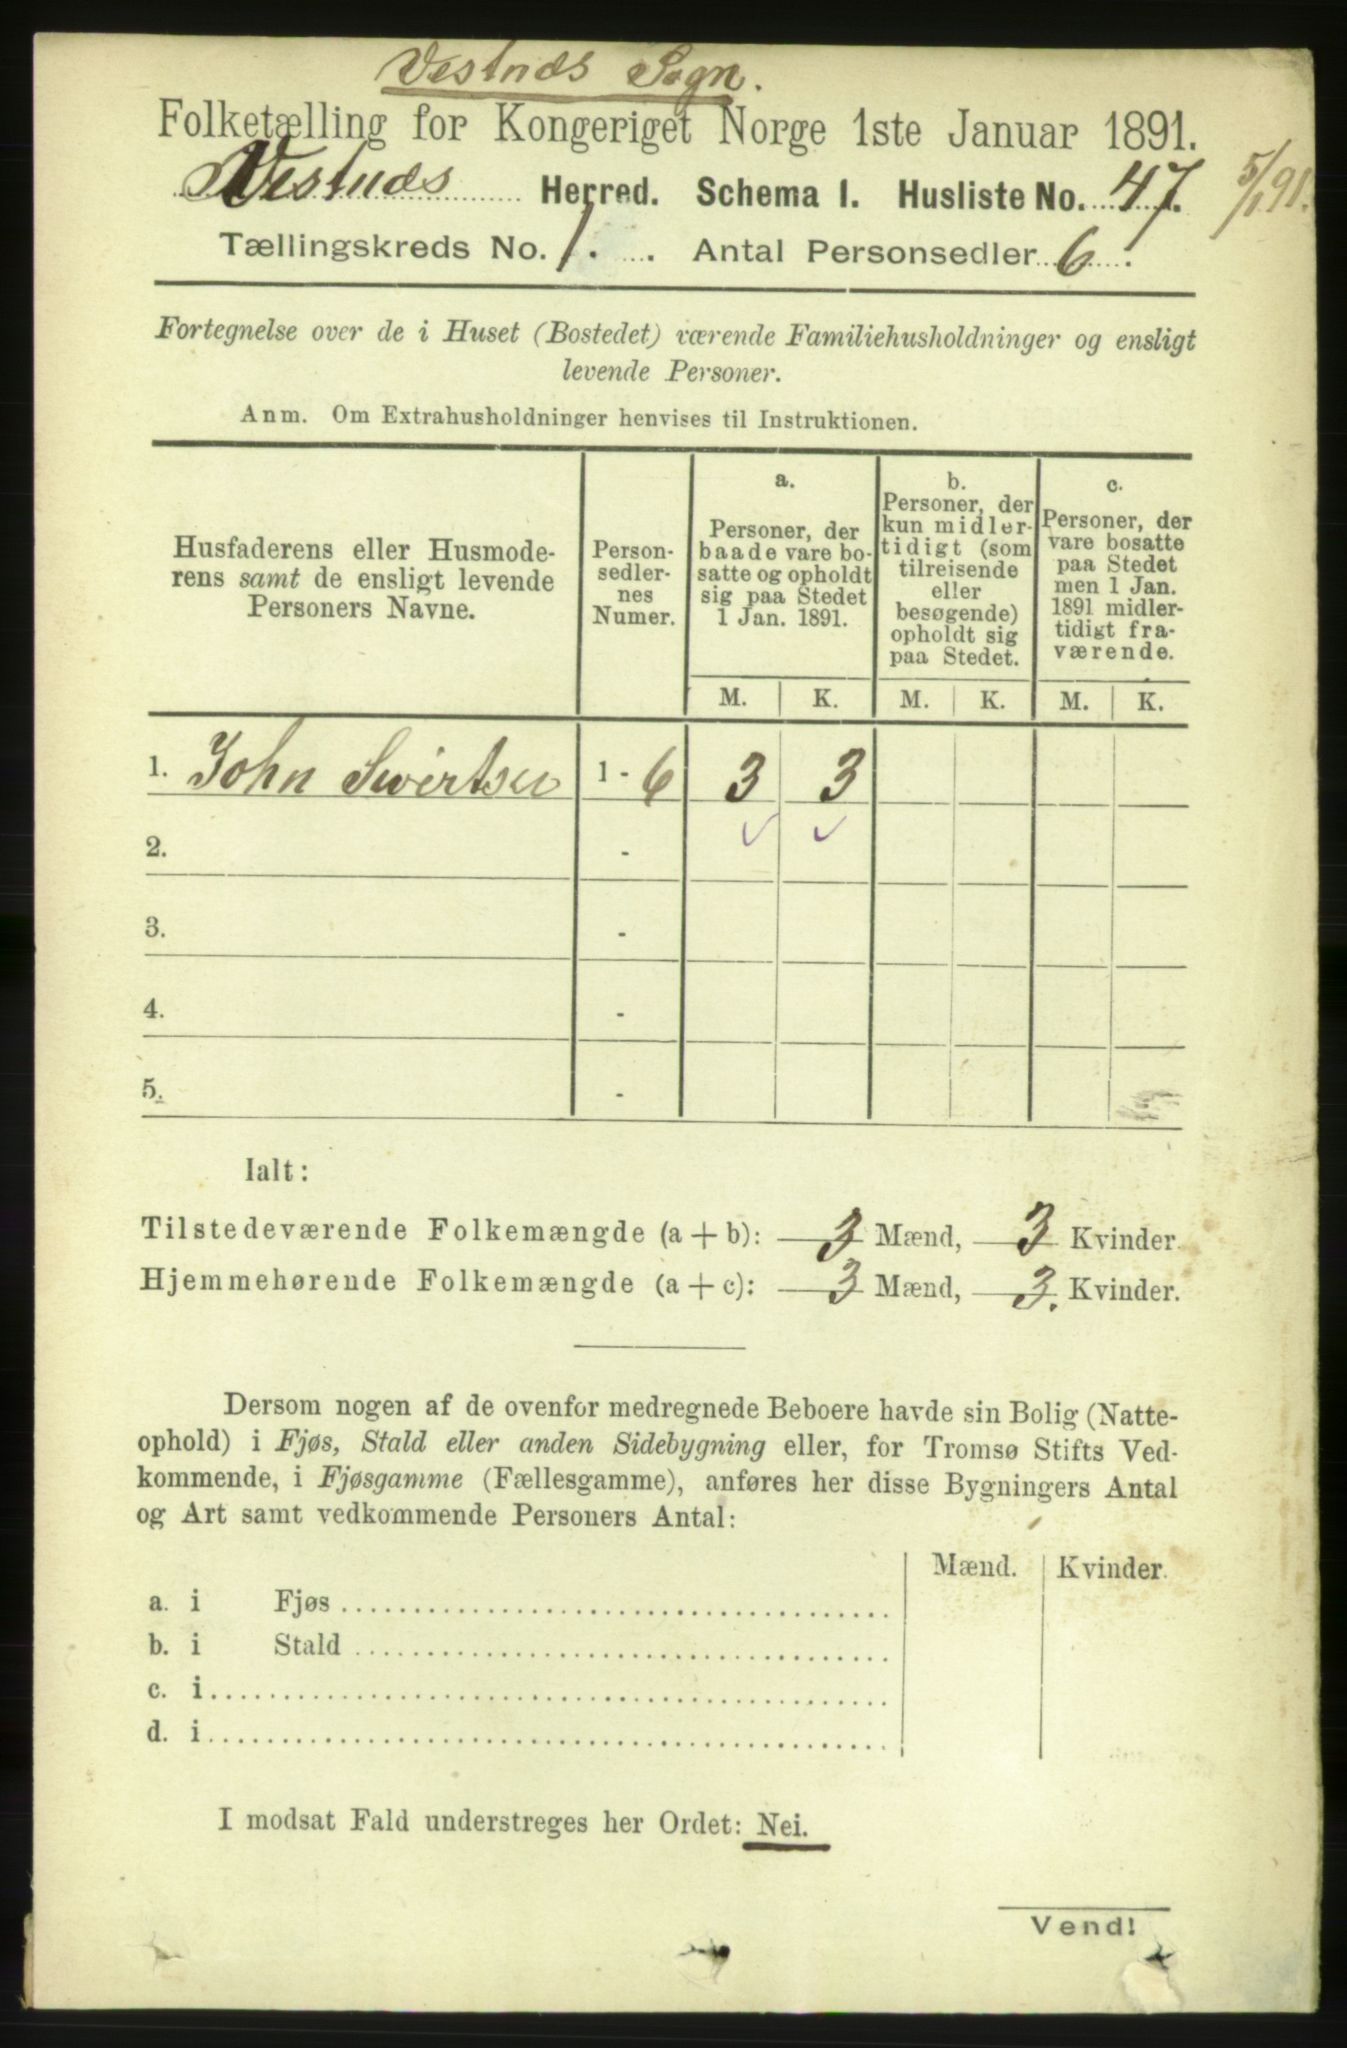 Vestnæs Sogn.
Folketælling for Kongeriget Norge 1ste Januar 1891.
Vestnæs Herred. Schema I. Husliste No. 47. 5/1 91.
Tællingskreds No. 1. Antal Personsedler 6.
Fortegnelse over de i Huset (Bostedet) værende Familiehusholdninger og ensligt
levende Personer.
Anm. Om Extrahusholdninger henvises til Instruktionen.
Husfaderens eller Husmode-
rens samt de ensligt levende
Personers Navne.
Person-
sedler-
nes
Numer.
a.
Personer, der
baade vare bo-
satte og opholdt
sig paa Stedet
1 Jan. 1891.
b.
Personer, der
kun midler-
tidigt (som
tilreisende
eller
besøgende)
opholdt sig
paa Stedet.
c.
Personer, der
vare bosatte
paa Stedet
men 1 Jan.
1891 midler-
tidigt fra-
værende.
M. K. M. K. M. K.
1. John Sivertsen 1 - 6 3 3
2. -
3. -
4. -
5. -
Ialt:
Tilstedeværende Folkemængde (a + b): 3 Mænd, 3 Kvinder.
Hjemmehørende Folkemængde (a + c): 3 Mænd, 3. Kvinder.
Dersom nogen af de ovenfor medregnede Beboere havde sin Bolig (Natte-
ophold) i Fjøs, Stald eller anden Sidebygning eller, for Tromsø Stifts Ved-
kommende, i Fjøsgamme (Fællesgamme), anføres her disse Bygningers Antal
og Art samt vedkommende Personers Antal:
Mænd. Kvinder.
a. i Fjøs
b. i Stald
c. i
d. i
I modsat Fald understreges her Ordet: Nei.
Vend!